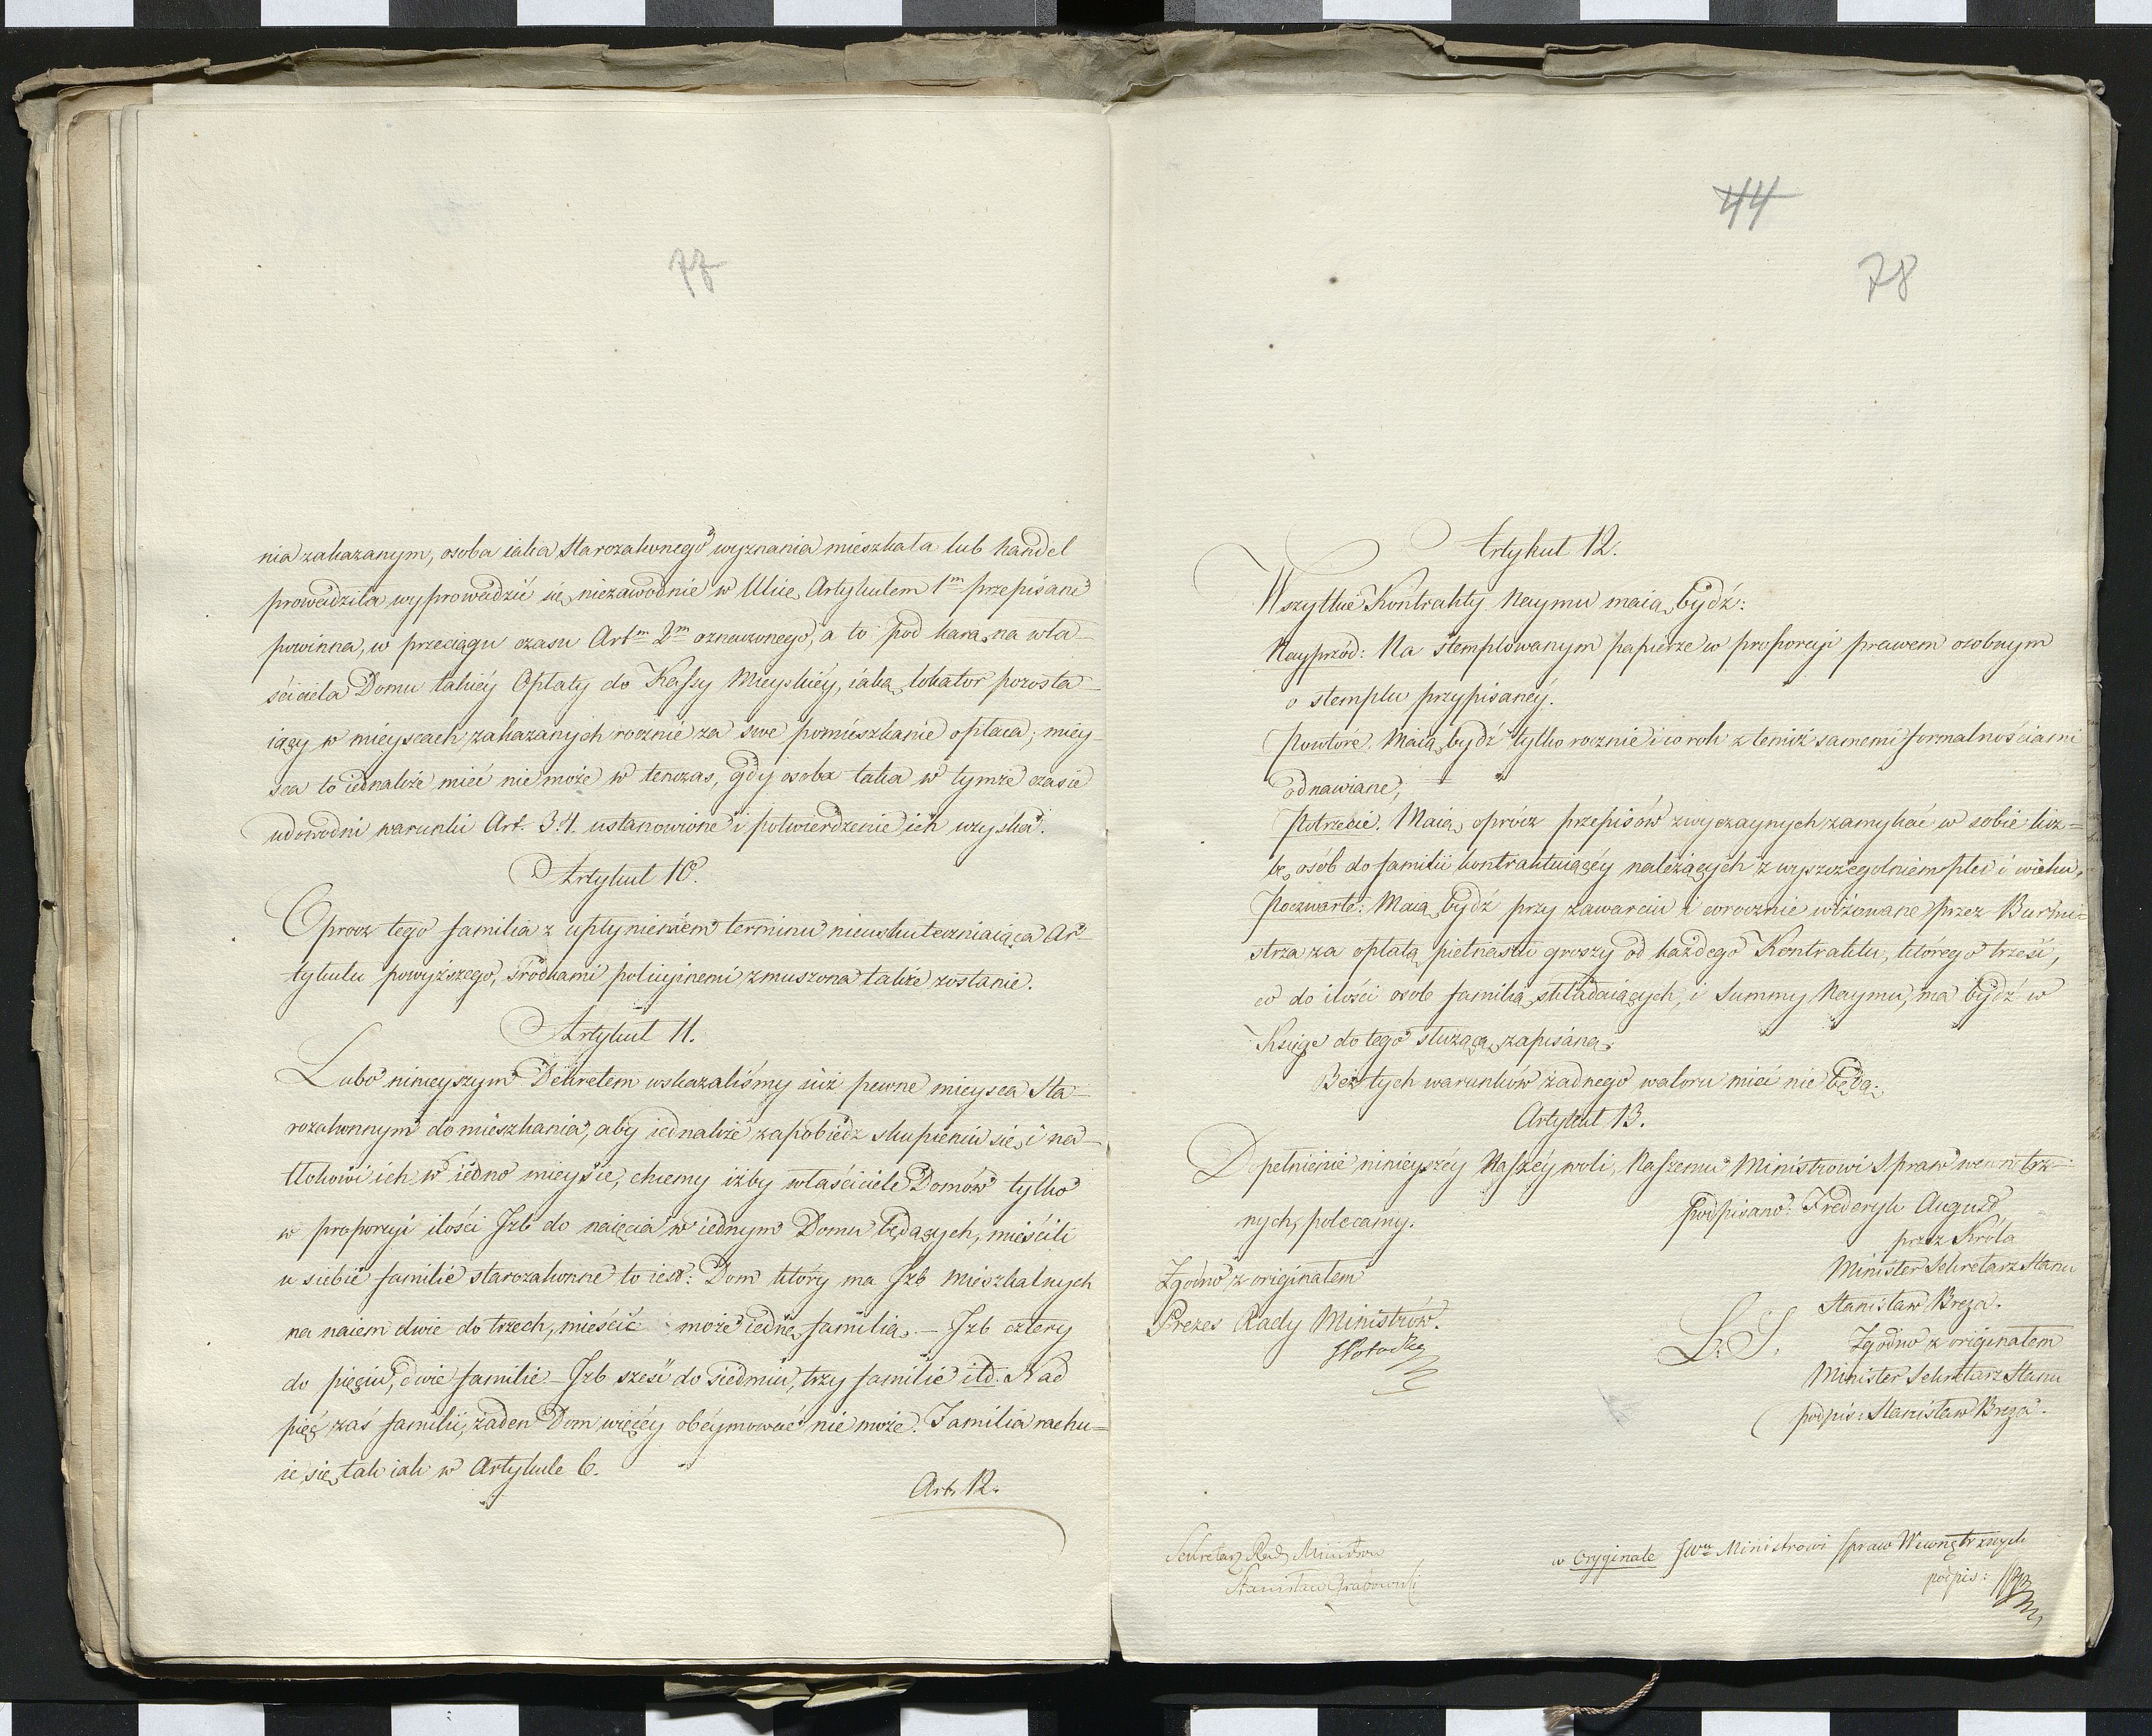 77
nia zakazanym, osoba iaka Starozakonnego wyznania mieszkała lub handel
prowadziła wyprowadzić się niezawodnie w Ulice Artykułem 1m przepisane
powinna, w przeciągu czasu Artm 2m oznaczonego, a to pod karą na wła-
ściciela Domu takiéy Opłaty do Kassy Mieyskiéy, iaką lokator pozosta-
iący w mieyscach zakazanych rocznie za swe pomieszkanie opłaca; miey-
sca to iednakże mieć nie może w tenczas, gdy osoba taka w tymże czasie
udowodni warunki Art. 3.4. ustanowione i potwierdzenie ich uzyska.
Artykuł 10.
Oprocz tego familia z upłynieniem terminu nieuskuteczniaiąca Ar-
tykułu powyższego, środkami policyinemi zmuszona także zostanie.
Artykuł 11.
Lubo ninieyszym Dekretem wskazaliśmy iuż pewne mieysca Sta-
rozakonnym do mieszkania, aby iednakże zapobiedz skupieniu się i na-
tłokowi ich w iedno mieysce, chcemy iżby właściciele Domów tylko
w proporcyi ilości Jzb do naięcia w iednym Domu będących, mieścili
u siebie familie starozakonne to iest: Dom który ma Jzb mieszkalnych
na naiem dwie do trzech, mieścić może iednę familią. – Jzb cztery
do pięciu, dwie familie – Jzb sześć do siedmiu, trzy familie itd. Nad
pięć zaś familii, żaden Dom więcéy obeymować nie może. Familia rachu=
ie się tak iak w Artykule 6.
Art. 12.
44
78
Artykuł 12.
Wszystkie Kontrakty Naymu maią bydź:
Nayprzód: Na stemplowanym papierze w proporcyi prawem osobnym
o stemplu przypisanéy.
Powtóre. Maią bydź tylko rocznie i co rok z temiż samemi formalnościami
odnawiane,
Potrzecie. Maią oprócz przepisów zwyczaynych zamykać w sobie licz=
bę osób do familii kontraktuiącéy należących z wyszczególniem płci i wieku,
Poczwarte: Maią bydź przy zawarciu i corocznie wizowane przez Burmi=
strza za opłatą piętnastu groszy od każdego Kontraktu, którego treść,
co do ilości osob familią składaiących, i Summy Naymu, ma bydź w
Księge do tego służącą zapisana.
Bez tych warunków żadnego waloru mieć nie będą.
Artykuł 13.
Dopełnienie ninieyszéy Naszéy woli, Naszemu Ministrowi Spraw wewnętrz-
nych, polecamy.
podpisano: Frederyk August,
przez Króla
Minister Sekretarz Stanu
Stanisław Breza.
Zgodno z originałem
Prezes Rady Ministrów.
L.S.
Zgodno z originałem
Minister Sekretarz Stanu
podpis: Stanisław Breza.
Sekretarz Rady Ministrów
Stanisław Grabowski
w Oryginale JWu Ministrowi Spraw Wewnętrznych
podpis: